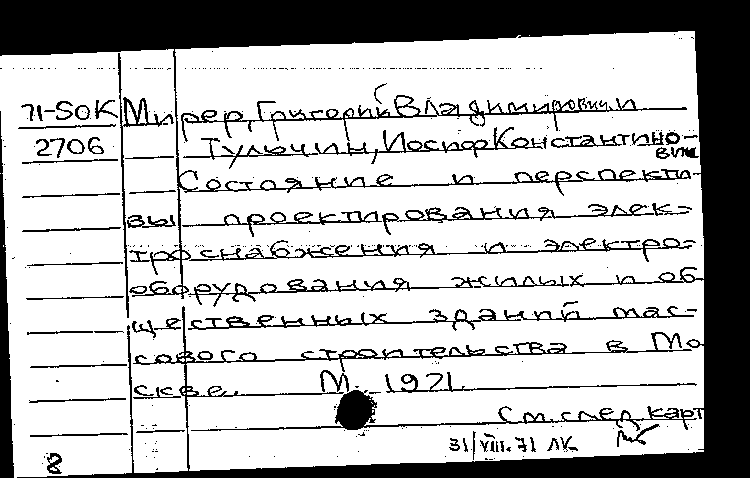 71-SOK Мирер, Григорий Владимирович и
2706 Тульчин, Иосиф Константино-
вич
Состояние и перспекти-
вы проектирования элек-
троснабжения и электро-
оборудования жилых и об
щественных зданий мас-
сового строительства в Мо
скве. М. 1971.
См. след. карт
31/VIII.71 ЛК
8